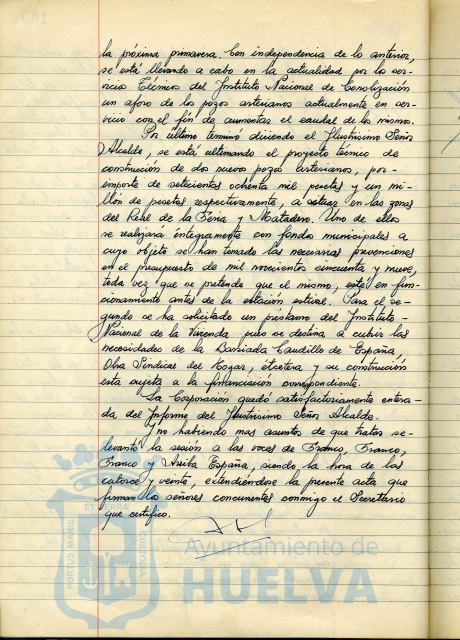 la próxima primavera. Con independencia de lo anterior,
se está llevando a cabo en la actualidad por los ser-
vicios Técnicos del Instituto Nacional de Conolización
un aforo de los pozos artesianos actualmente en ser-
vicio con el fin de aumentar el caudal de los mismos.
Por último terminó diciendo el Ilustrísimo Señor
Alcalde, se está ultimando el proyecto técnico de
construcción de dos nuevos pozos artesianos, por
importe de setecientas ochenta mil pesetas y un mi-
llón de pesetas respectivamente, a situar en las zonas
del Real de la Feria y Matadero. Uno de ellos
se realizará íntegramente con fondos municipales a
cuyo objeto se han tomado las necesarias prevenciones
en el presupuesto de mil novecientos cincuenta y nueve,
toda vez que se pretende que el mismo, esté en fun-
cionamiento antes de la estación estival. Para el se-
gundo se ha solicitado un préstamo del Instituto
Nacional de la Vivienda, pues se destina a cubrir las
necesidades de la Barriada Caudillo de España,
Obra Sindical del Hogar, étcetera y su construcción
esta sujeta a la financiación correspondiente.
La Corporación quedó satisfactoriamente entera-
da del Informe del Ilustrísimo Señor Alcalde.
Y no habiendo mas asuntos de que tratar se
levantó la sesión a las voces de Franco, Franco,
Franco y Arriba España, siendo la hora de las
catorce y veinte, extendiéndose la presente acta que
firman los señores concurrentes conmigo el Secretario
que certifico.
PORTUS MARIS ET TERRAE CUSTODIA
Ayuntamiento de
HUELVA